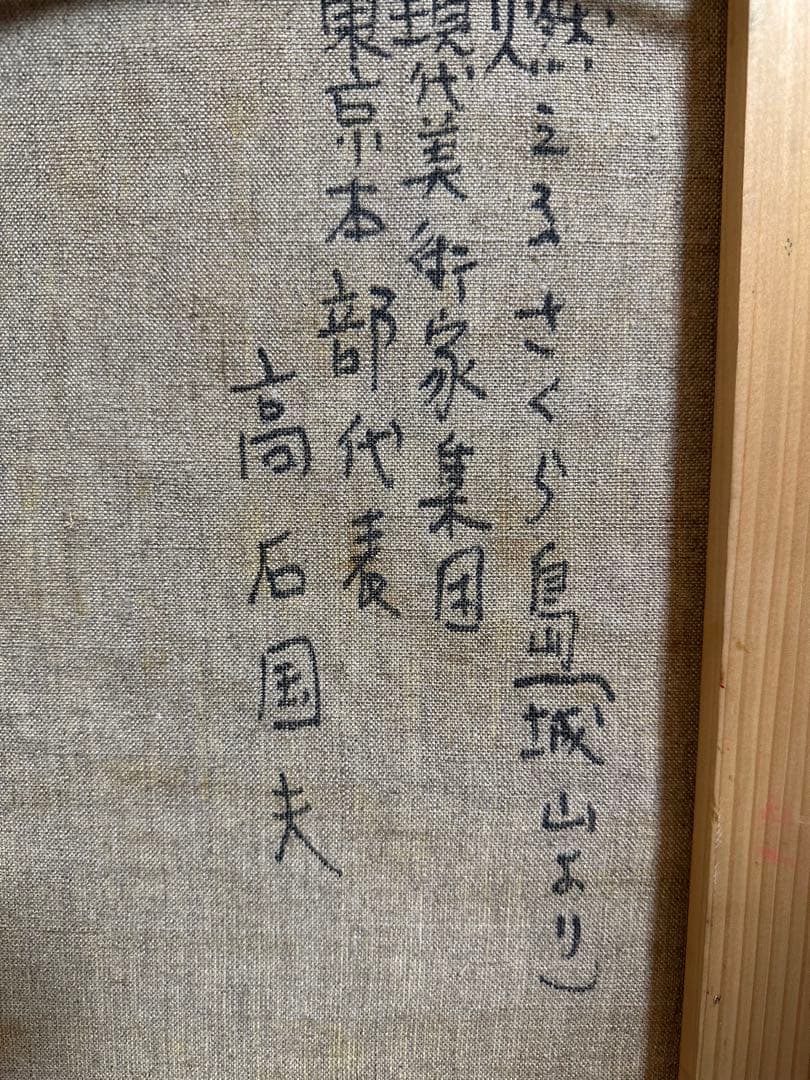 燃えるさくら島(城山より)
現代美術家集団
東京本部代表
高石国夫